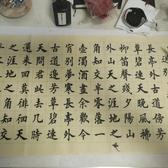 送
長亭外古道邊芳
草碧連天晚風拂
柳笛聲殘夕陽山
外山天之涯地之
角知交半零落一
壺濁酒盡餘歡今
宵別夢寒長亭外
古道邊芳草碧連
天問君此去幾時
還來時莫徘徊天
之涯地之角知交